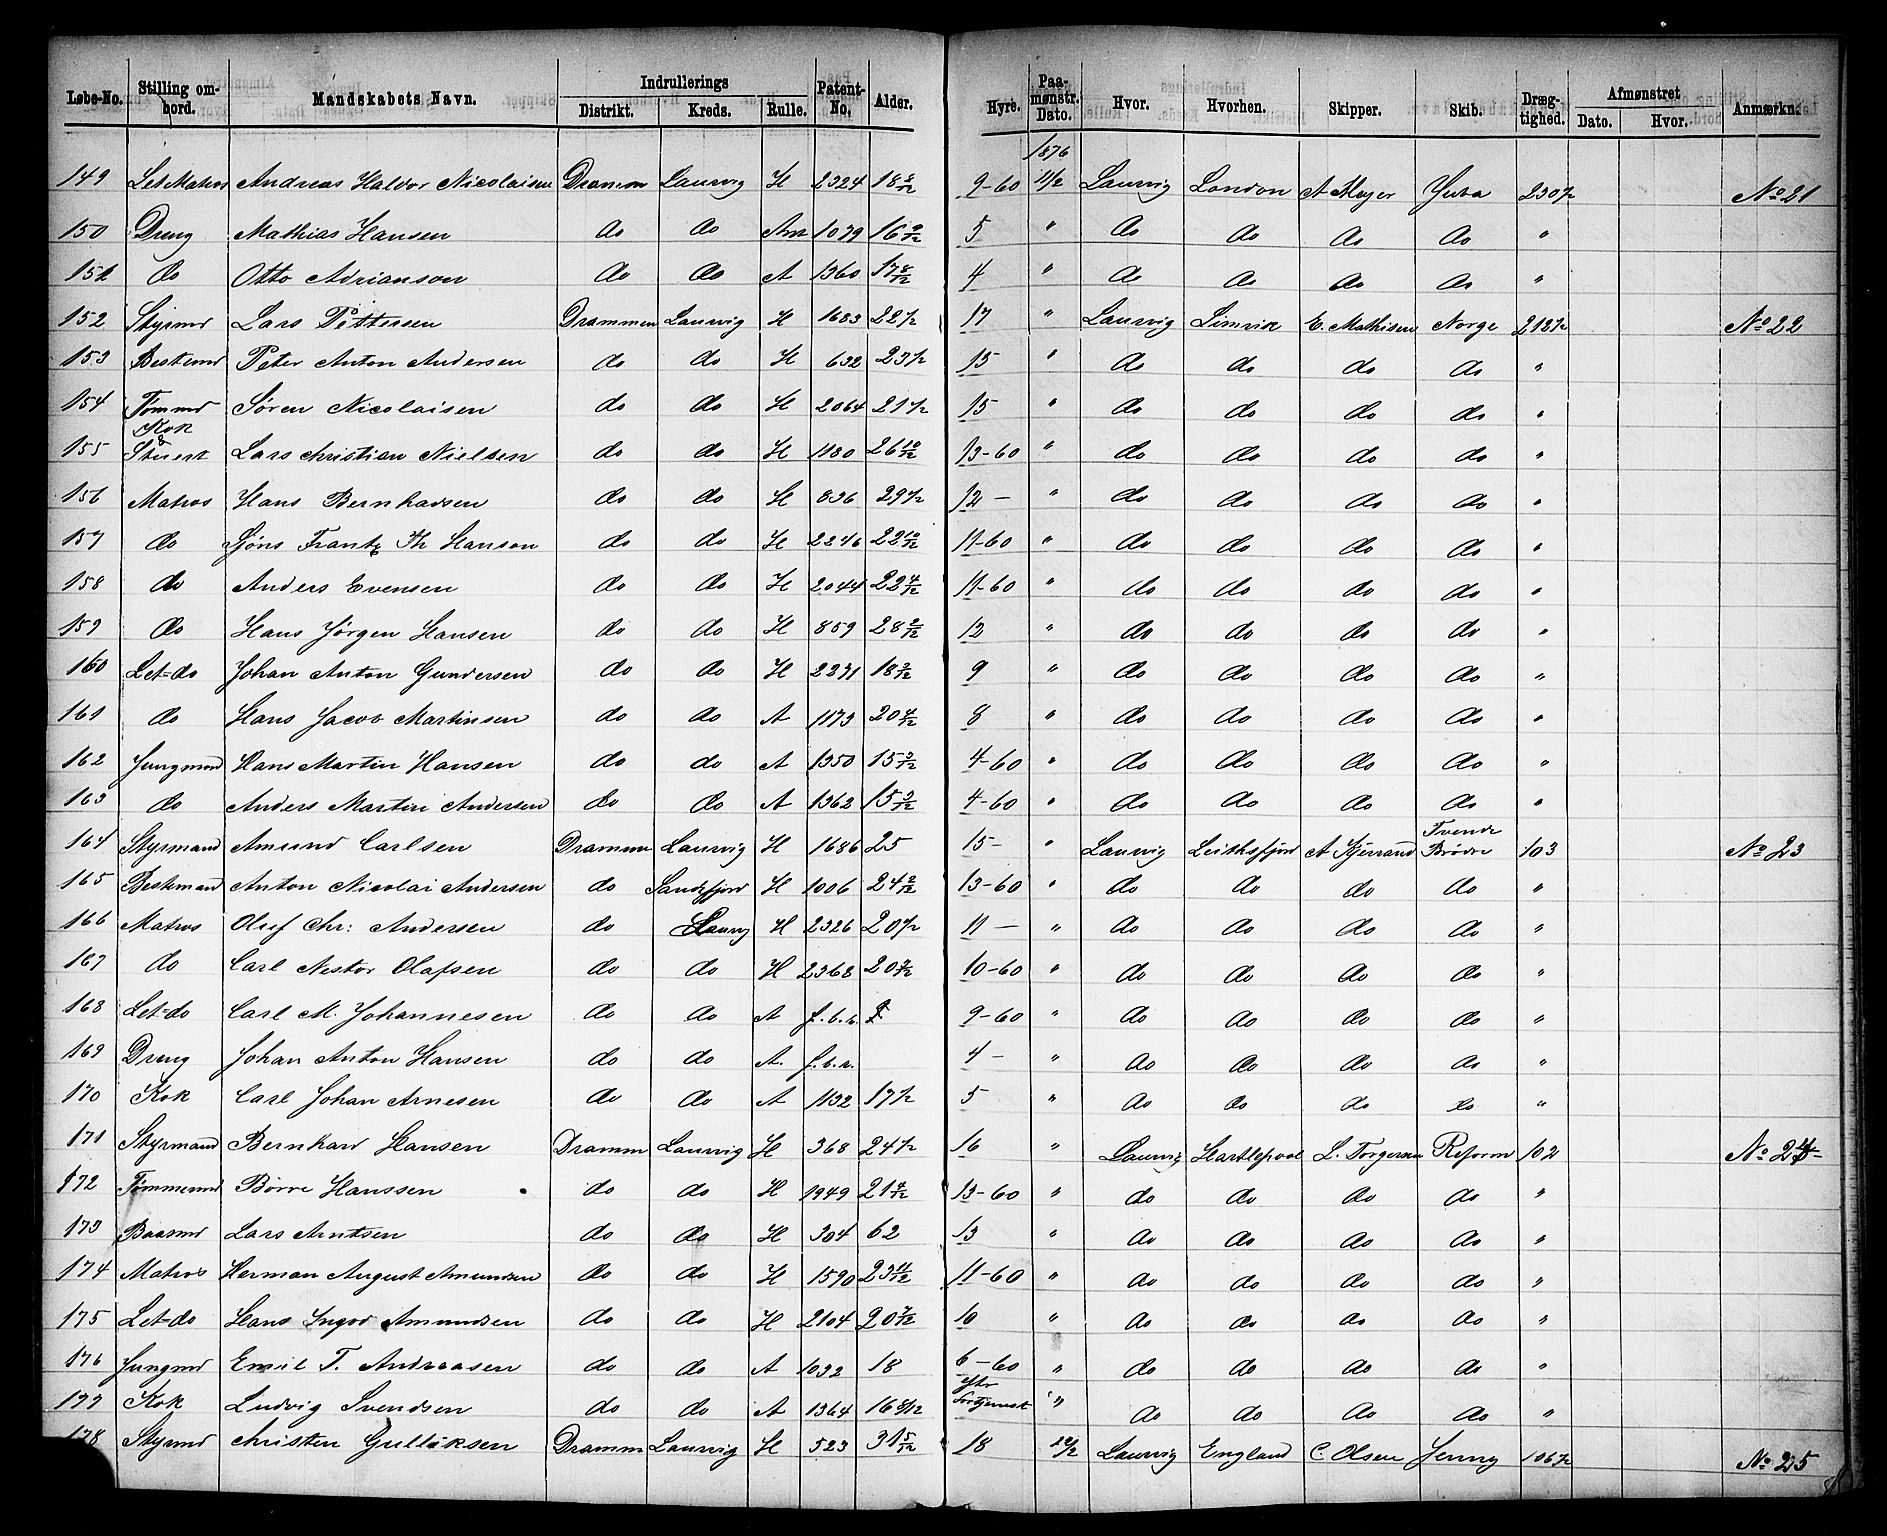 Løbe-No. Stilling ombord. Mandskabets Navn. Indrullerings Distrikt. Kreds. Rulle. Patent-No. Alder. Hyre. Paamønstr. Dato. Hvor. Hvorhen. Skipper. Skib. Drægtighed. Afmønstret Dato. Hvor. Anmærkn.
1876
149 Let Matros Andreas Haldor Nicolaisen Dramm Laurvig H 2324 18 2/12 9-60 11/2 Laurvig London A Meyer 230½ No 21
150 Dreng Mathias Hansen do do Am 1079 16 9/12 5 " do do do do "
151 do Otto Adrianson do do A 1360 17 8/12 4 " do do do do "
152 Styrmd Lars Pettersen Drammen Laurvig H 1683 22½ 17 " Laurvig Limrik E. Mathisen Norge 212½ No 22
153 Bestemd Peter Anton Andersen do do H 632 23½ 15 " do do do do "
154 Tømmd Søren Nicolaisen do do H 2064 21½ 15 " do do do do "
155 Kok & Stuert Lars Christian Nielsen do do H 1180 26 10/12 13-60 " do do do do "
156 Matros Hans Bernhadsen do do H 836 29½ 12 - " do do do do "
157 do Jøns Frantz Th Hanson do do H 2246 22 10/12 11-60 " do do do do "
158 do Anders Evensen do do H 2044 22 4/12 11-60 " do do do do "
159 do Hans Jørgen Hansen do do H 859 28 2/12 12 " do do do do "
160 Let=do Johan Anton Gundersen do do H 2231 18 2/12 9 " do do do do "
161 do Hans Jacob Martinsen do do A 1173 20 4/12 8 " do do do do "
162 Jungmnd Hans Martin Hansen do do A 1350 15 2/12 4-60 " do do do do "
163 do Anders Martin Andersen do do A 1362 15 3/12 4-60 " do do do do "
164 Styrmand Amund Carlsen Dramm Laurvig H 1686 25 15- " Laurvig Leithsfjord A Kjerrand Tvende Brødre 103 No 23
165 Bestmand Anton Nicolai Andersen do Sandefjord H 1006 24 2/12 13-60 " do do do do "
166 Matros Oluf Chr: Andersen do Laurvg H 2326 20½ 11 - " do do do do "
167 do Carl Nestor Olafsen do do H 2368 20 7/12 10-60 " do do do do "
168 Let=do Carl M. Johannesen do do A f.b.r. 9-60 " do do do do "
169 Dreng Johan Anton Hansen do do A. f.b.r. 4 - " do do do do "
170 Kok Carl Johan Arnesen do do A 1132 17½ 5 " do do do do "
171 Styrmand Bernhard Hansen Dramm Laurvig H 368 24½ 16 " Laurvig Hartlepool L. Torgersen Reform 102 No 24
172 Tømmermd Børre Hanssen do do H 1949 21 4/12 13-60 " do do do do "
173 Baasmd Lars Arntsen do do H 304 62 13 " do do do do "
174 Matros Herman August Amundsen do do H 1590 23 11/12 11-60 " do do do do "
175 Let=do Hans Ingvd Amundsen do do H 2104 20 7/12 10 " do do do do "
176 Jungmd Emil T. Andreasen do do A 1032 18 6-60 " do do do do "
177 Kok Ludvig Svendsen do do A 1364 16 8/12 eftr Fortjenest " do do do do "
178 Styrmd Christen Gulliksen Dramm Laurvig H 523 31 5/12 18 22/2 Laurvig England C. Olsen Jenny 106½ No 25